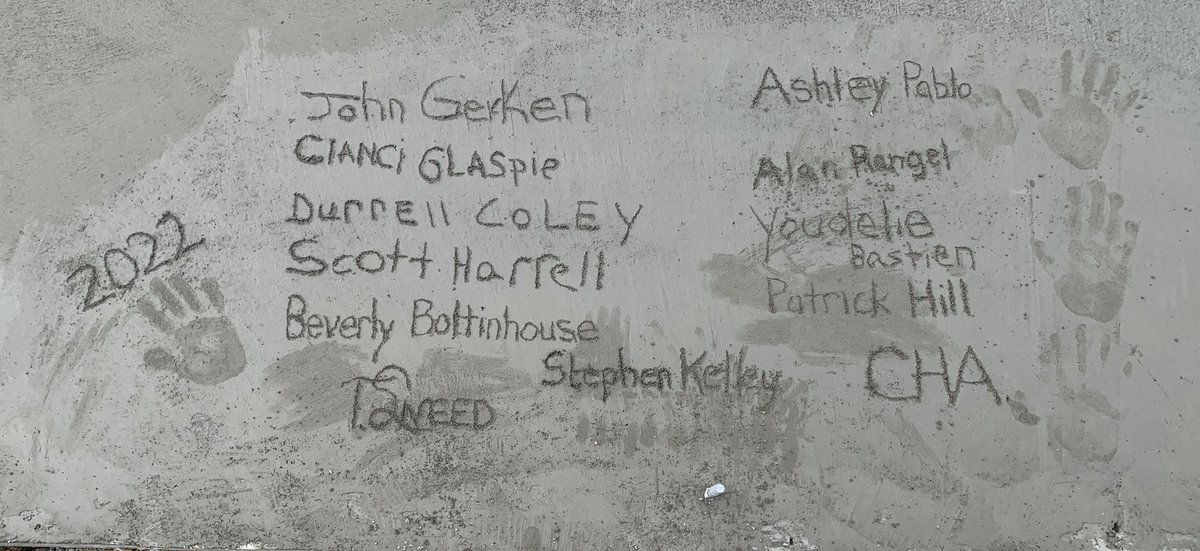 2022
John Gerken
CIANCI GLASpie
DurrEll COLEY
Scott Harrell
Beverly Boltinhouse
T. SNEED
Stephen Kelley
Ashley Pablo
Alan Rangel
Youdelie
Bastien
Patrick Hill
CHA